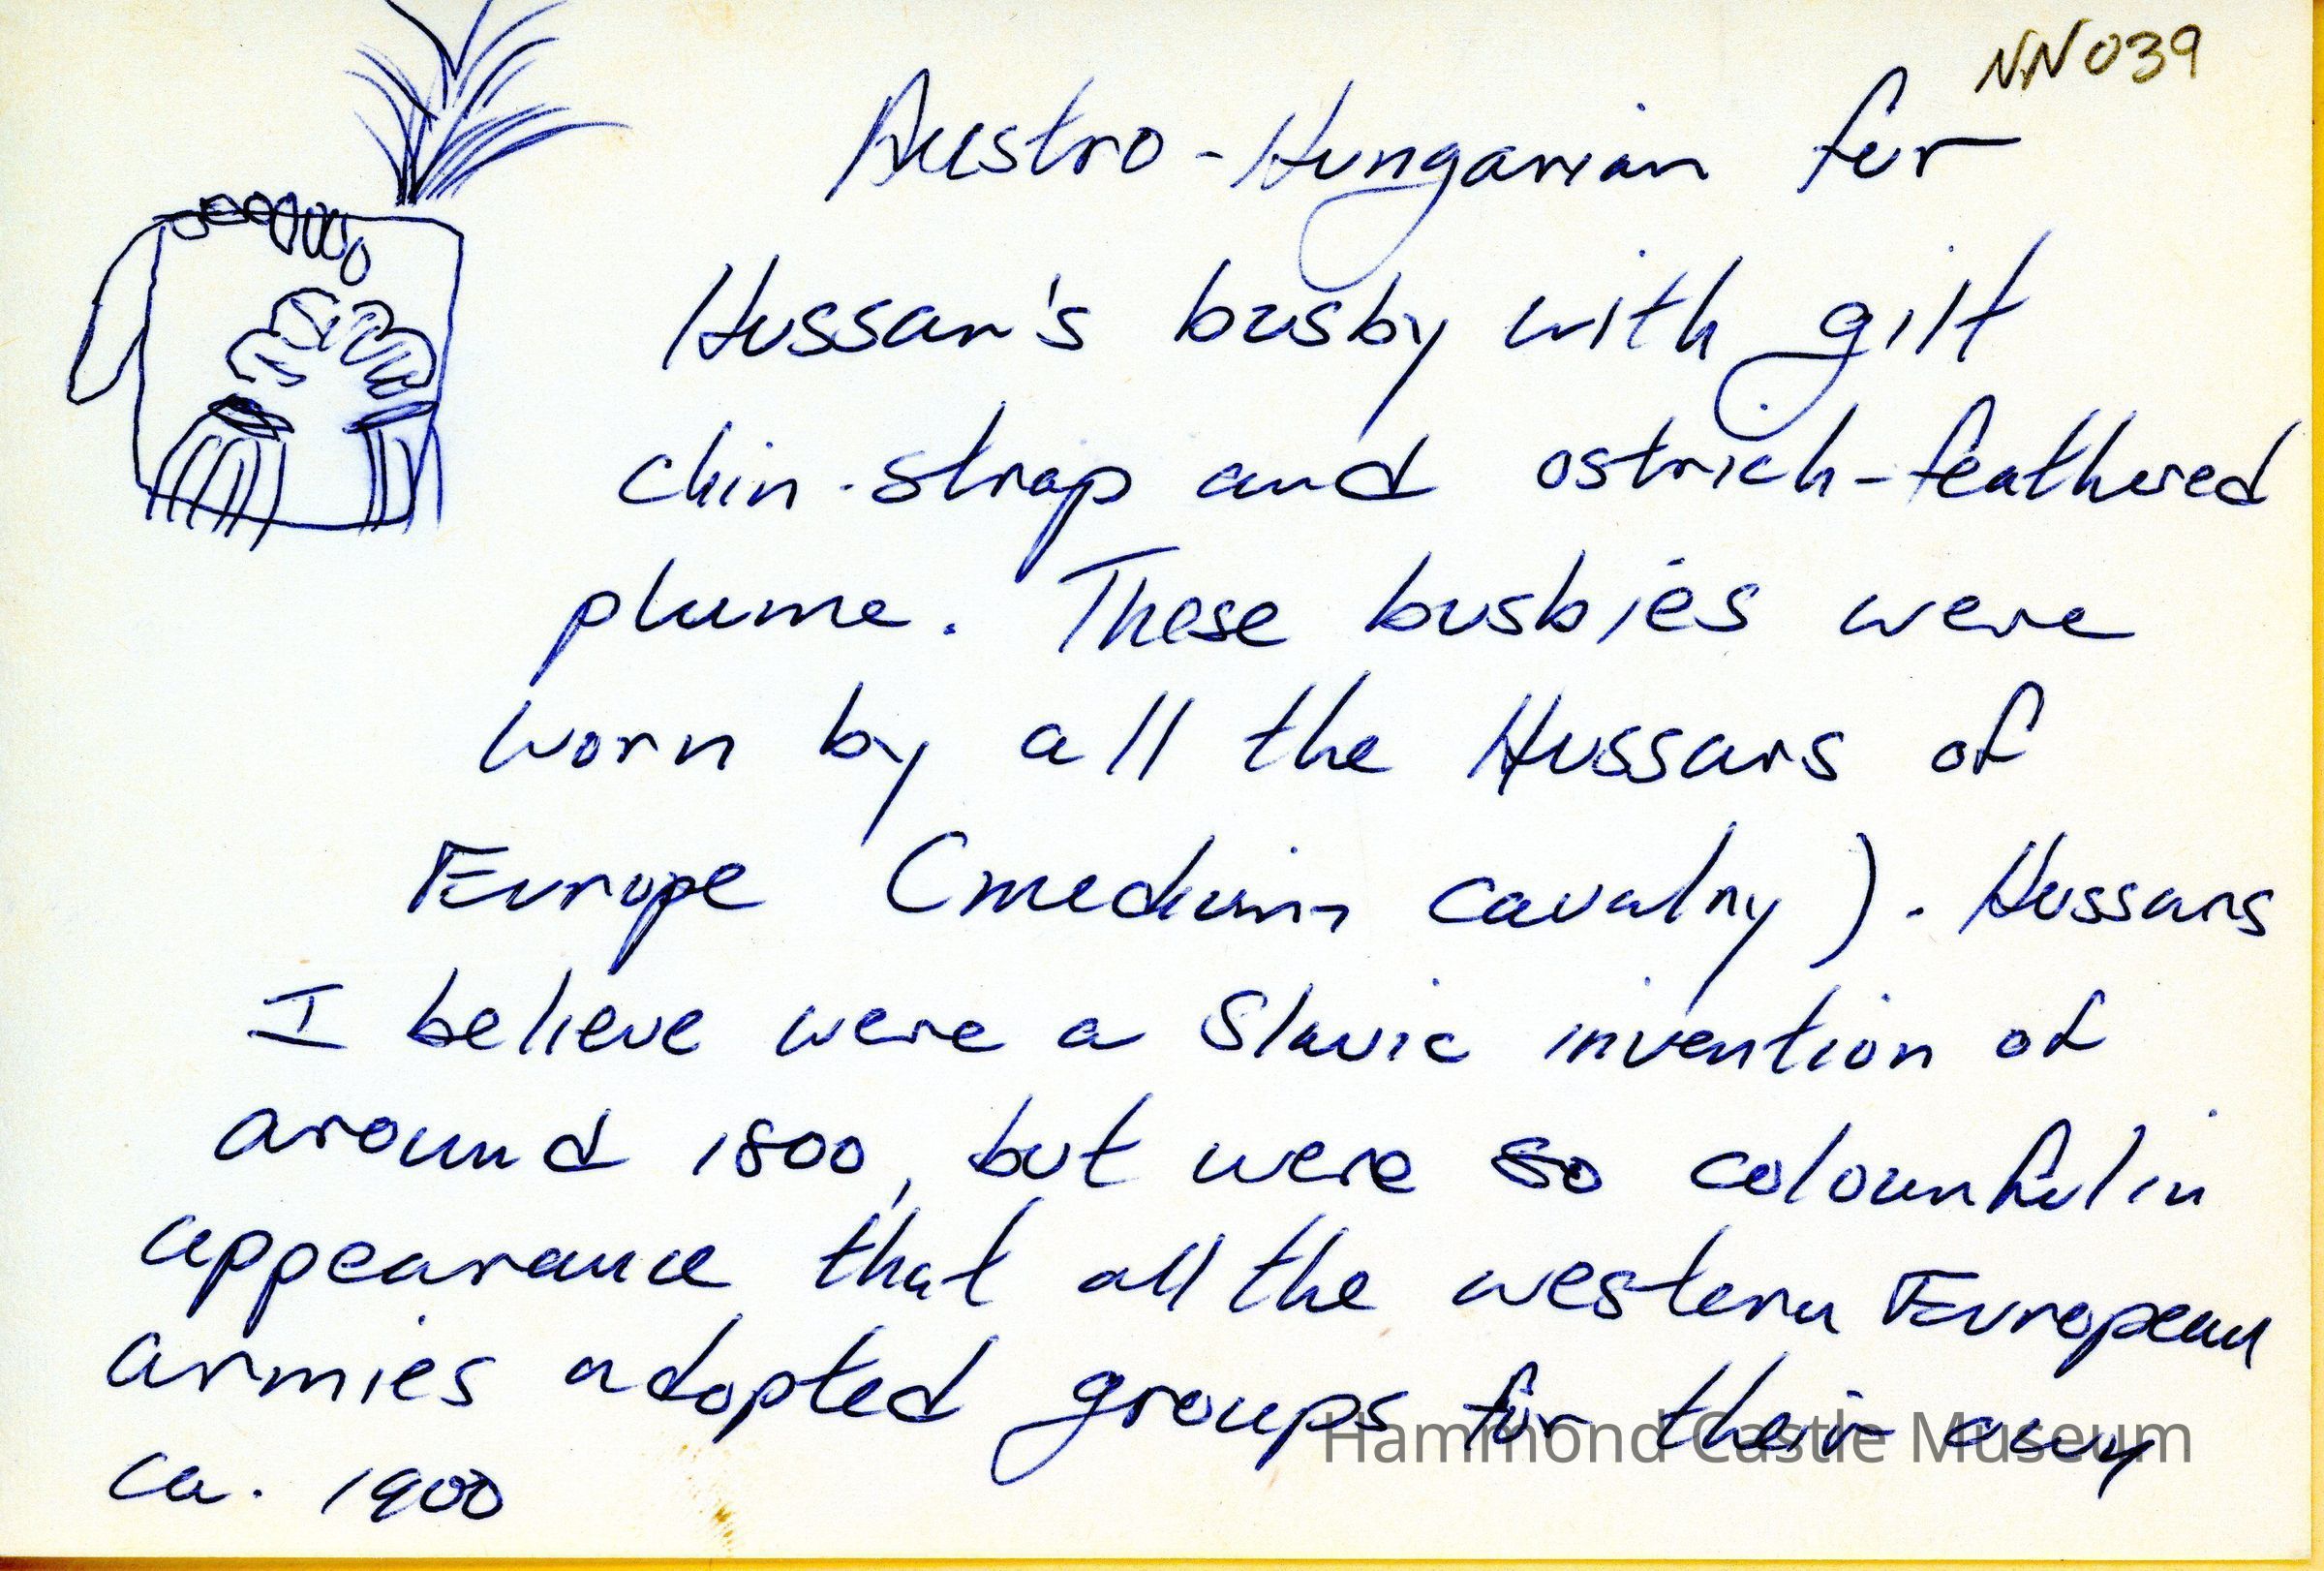 NN039
Austro-Hungarian fur
Hussar's busby with gilt
chin-strap and ostrich-feathered
plume. These busbies were
worn by all the Hussars of
Europe (medium cavalry). Hussars
I believe were a Slavic invention of
around 1800, but were so colourful in
appearance that all the western European
armies adopted groups for their own
ca. 1900
Hammond Castle Museum